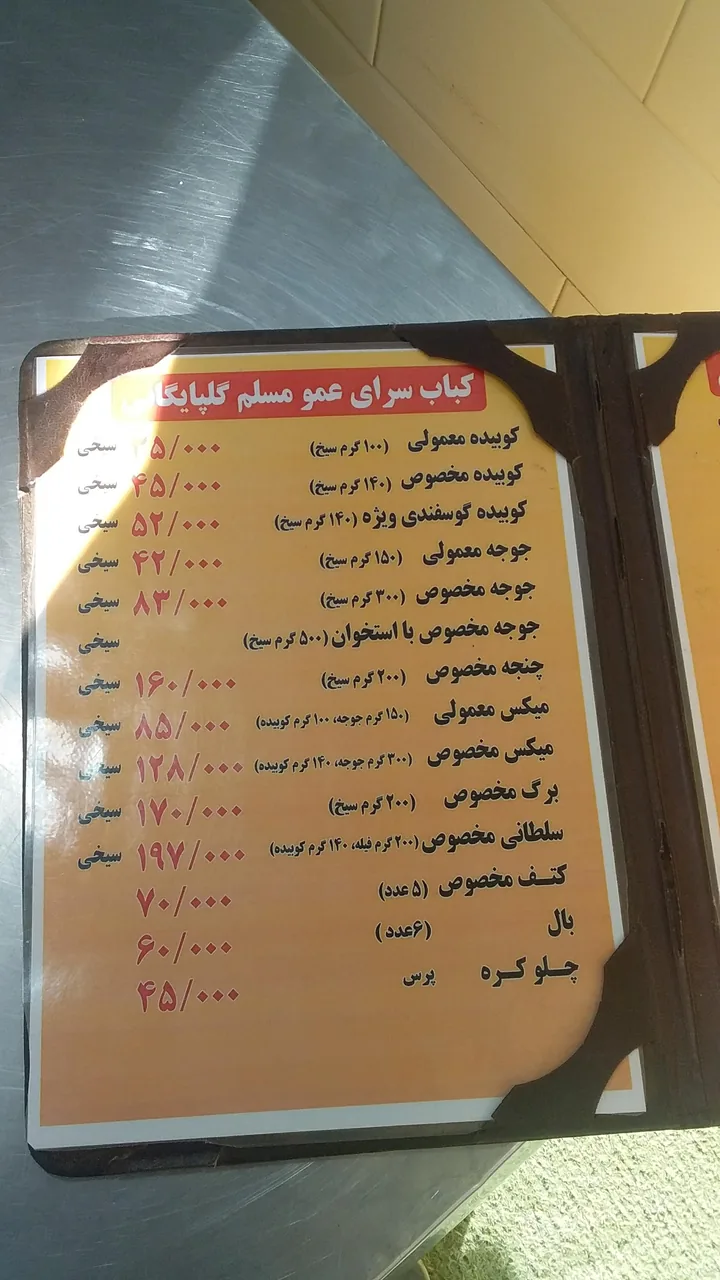 کباب سرای عمو مسلم گلپایگانی
کوبیده معمولی (۱۰۰ گرم سیخ) ۳۵/۰۰۰ سیخی
کوبیده مخصوص (۱۴۰ گرم سیخ) ۴۵/۰۰۰ سیخی
کوبیده گوسفندی ویژه (۱۴۰ گرم سیخ) ۵۲/۰۰۰ سیخی
جوجه معمولی (۱۵۰ گرم سیخ) ۴۲/۰۰۰ سیخی
جوجه مخصوص (۳۰۰ گرم سیخ) ۸۳/۰۰۰ سیخی
جوجه مخصوص با استخوان (۵۰۰ گرم سیخ) سیخی
چنجه مخصوص (۲۰۰ گرم سیخ) ۱۶۰/۰۰۰ سیخی
میکس معمولی (۱۵۰ گرم جوجه، ۱۰۰ گرم کوبیده) ۸۵/۰۰۰ سیخی
میکس مخصوص (۳۰۰ گرم جوجه، ۱۴۰ گرم کوبیده) ۱۲۸/۰۰۰ سیخی
برگ مخصوص (۲۰۰ گرم سیخ) ۱۷۰/۰۰۰ سیخی
سلطانی مخصوص (۲۰۰ گرم فیله، ۱۴۰ گرم کوبیده) ۱۹۷/۰۰۰ سیخی
کتف مخصوص (۵ عدد) ۷۰/۰۰۰
بال (۶عدد) ۶۰/۰۰۰
چلو کره پرس ۴۵/۰۰۰